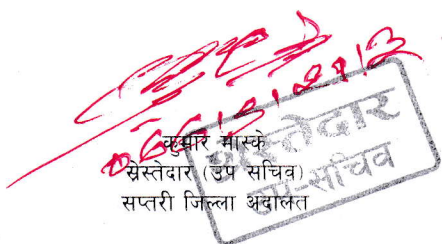 कुमार मास्के
स्रेस्तेदार (उप सचिव)
सप्तरी जिल्ला अदालत
स्रेस्तेदार
उप-सचिव